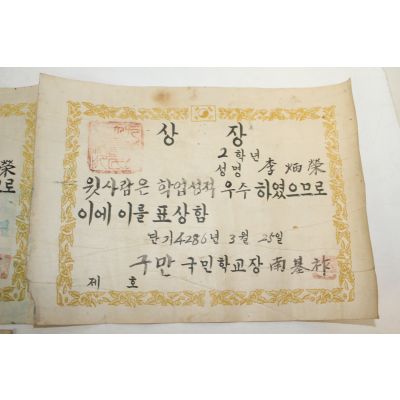 상 장
2학년
성명 李炳榮
윗사람은 학업성적 우수 하였으므로
이에 이를 표상함
단기4286년 3월 25일
구만 국민학교장 南基祚
제 호
榮
로